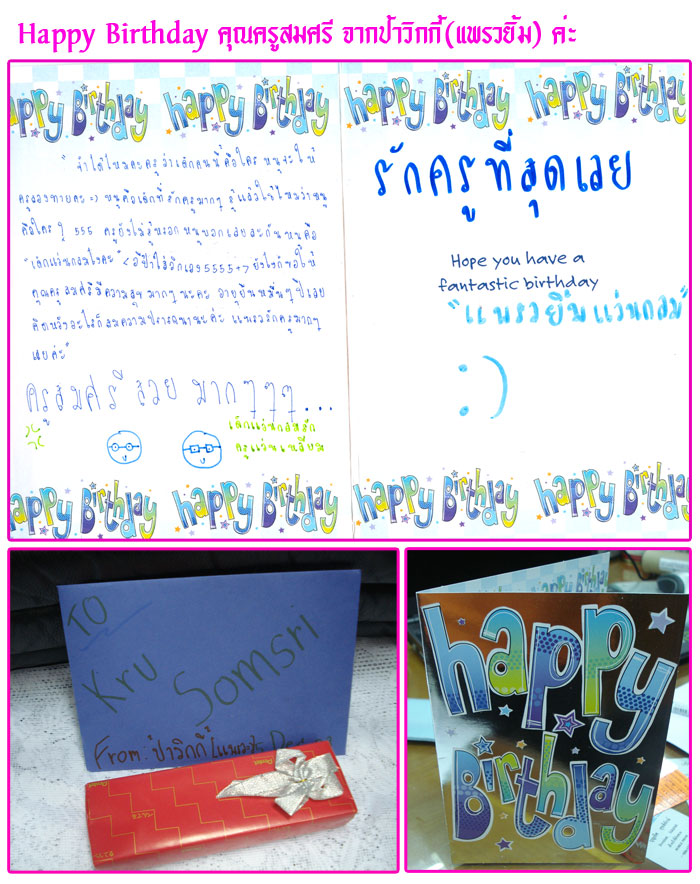 Happy Birthday คุณครูสมศรี จากป้าวิกกี้(แพรวยิ้ม) ค่ะ
happy Birthday happy Birthday
happy Birthday happy Birthday
"จำได้ไหมคะครูว่าเด็กคนนี้คือใคร หนูจะให้
ครูลองทายคะ =) หนูคือเด็กที่รักครูมากๆ รู้แล้วใช่ไหมว่าหนู
คือใคร ๆ 555 ครูยังไม่รู้หรอก หนูบอกเลยละกันหนูคือ
"เด็กแว่นกลมไงคะ" < อีป้าใส่รักเอง 5555+7 ยังไงก็ขอให้
คุณครูสมศรีมีความสุขมากๆนะคะ อายุยืนหมื่นๆปีเลย
คิดหวังอะไรก็สมความปรารถนานะค่ะ แพรวรักครูมากๆ
เลยค่ะ"
ครูสมศรี สวย มากๆๆๆ...
เด็กแว่นกลมรัก
ครูแว่นเหลี่ยม
รักครูที่สุดเลย
Hope you have a
fantastic birthday
"แพรวยิ้มแว่นกลม"
:)
happy Birthday happy Birthday
happy Birthday happy Birthday
TO
Kru Somsri
From: ป้าวิกกี้
happy
Birthday